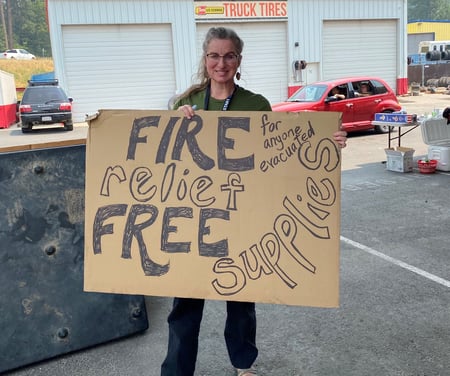 TRUCK TIRES
FIRE
for
anyone
evacuated
relief
FREE
supplies